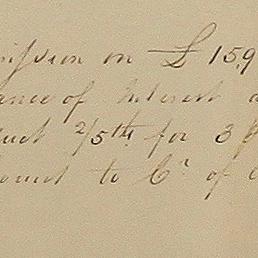 mission on £ 159
ance of Interest a
duct 2/5ths for 3
ount to Cr. of